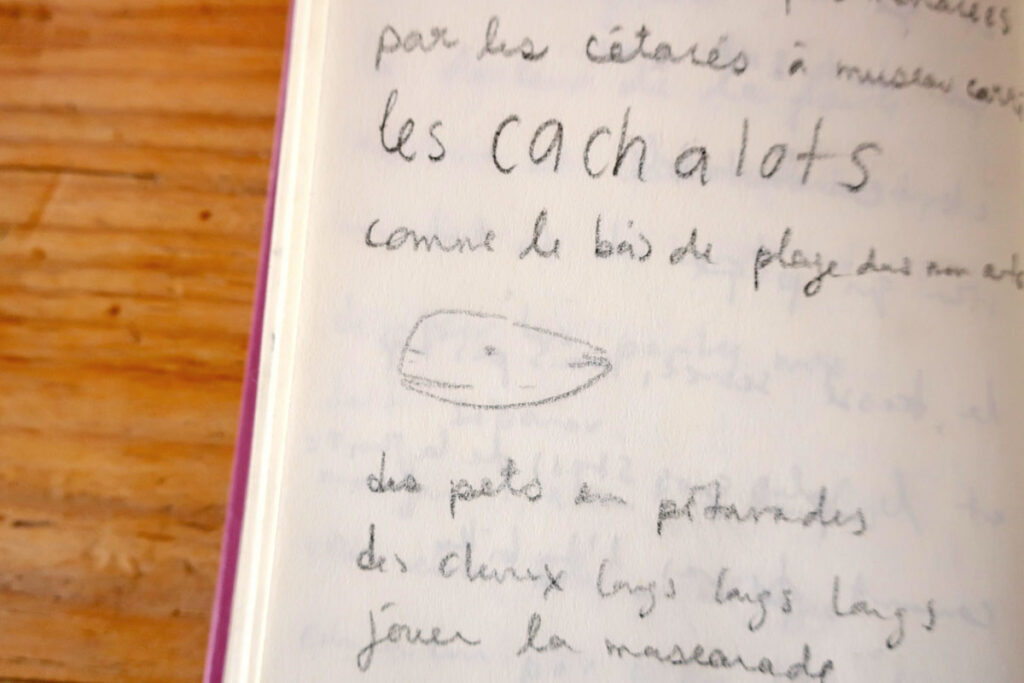 par les cétacés à museau carré
les cachalots
comme le bois de plage dans mon
des pets en pétarades
des cheveux longs longs longs
jouer la mascarade